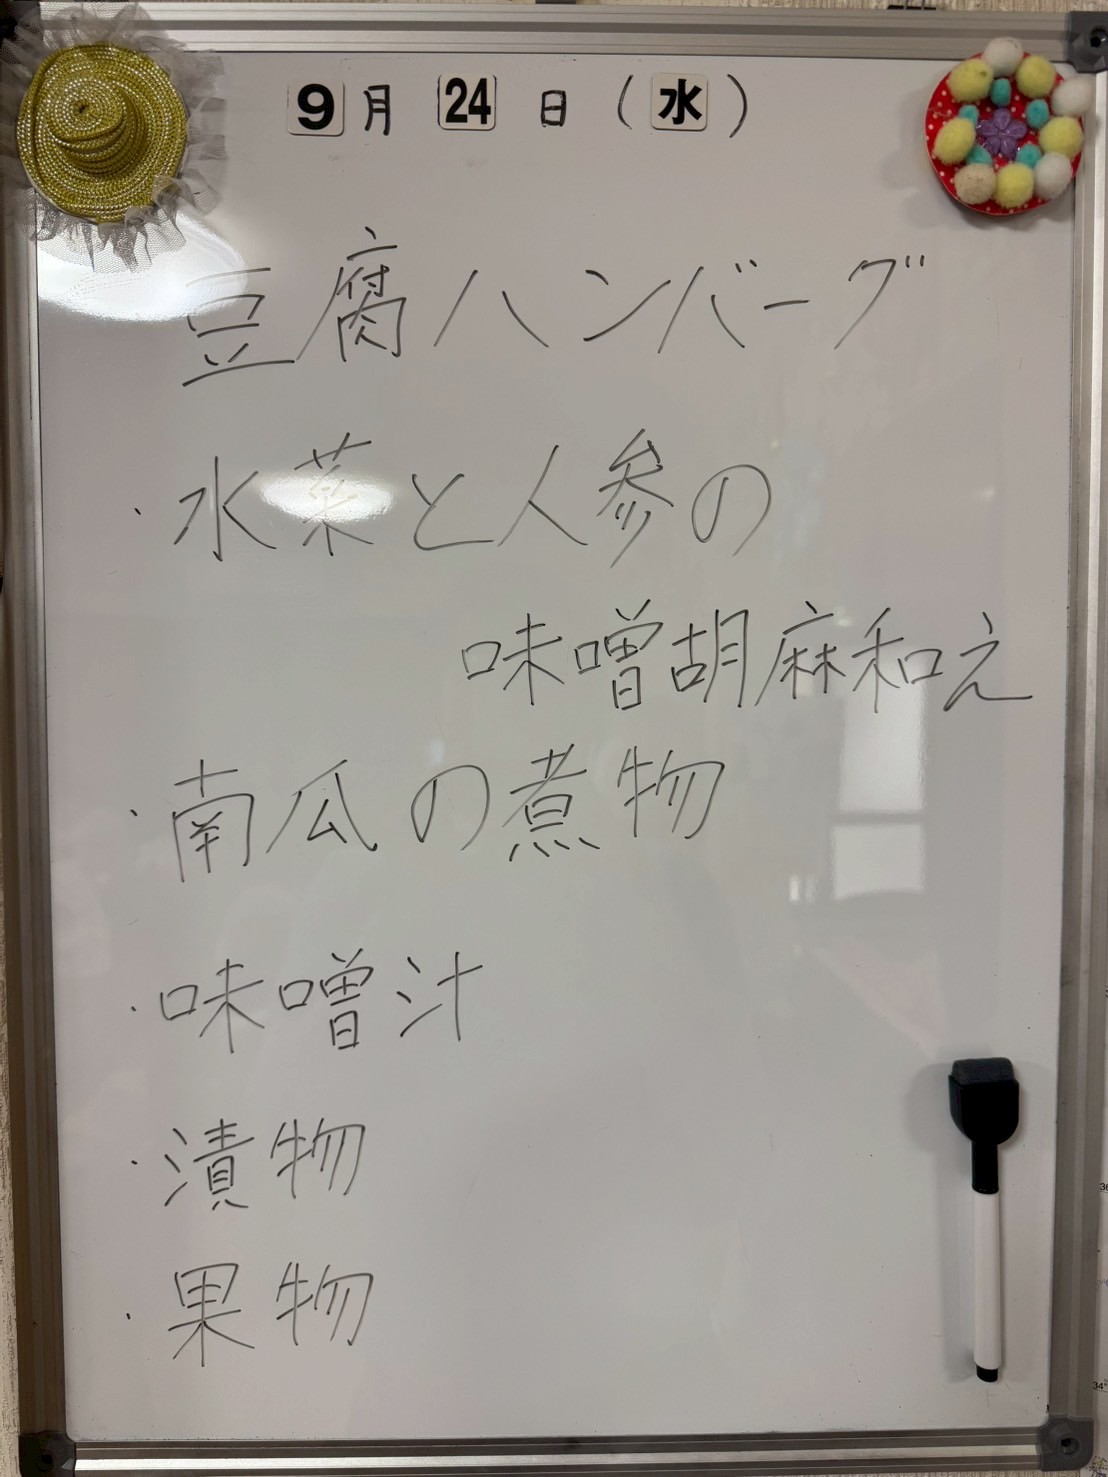 9月 24日(水)
豆腐ハンバーグ
・水菜と人参の
味噌胡麻和え
・南瓜の煮物
・味噌汁
・漬物
・果物